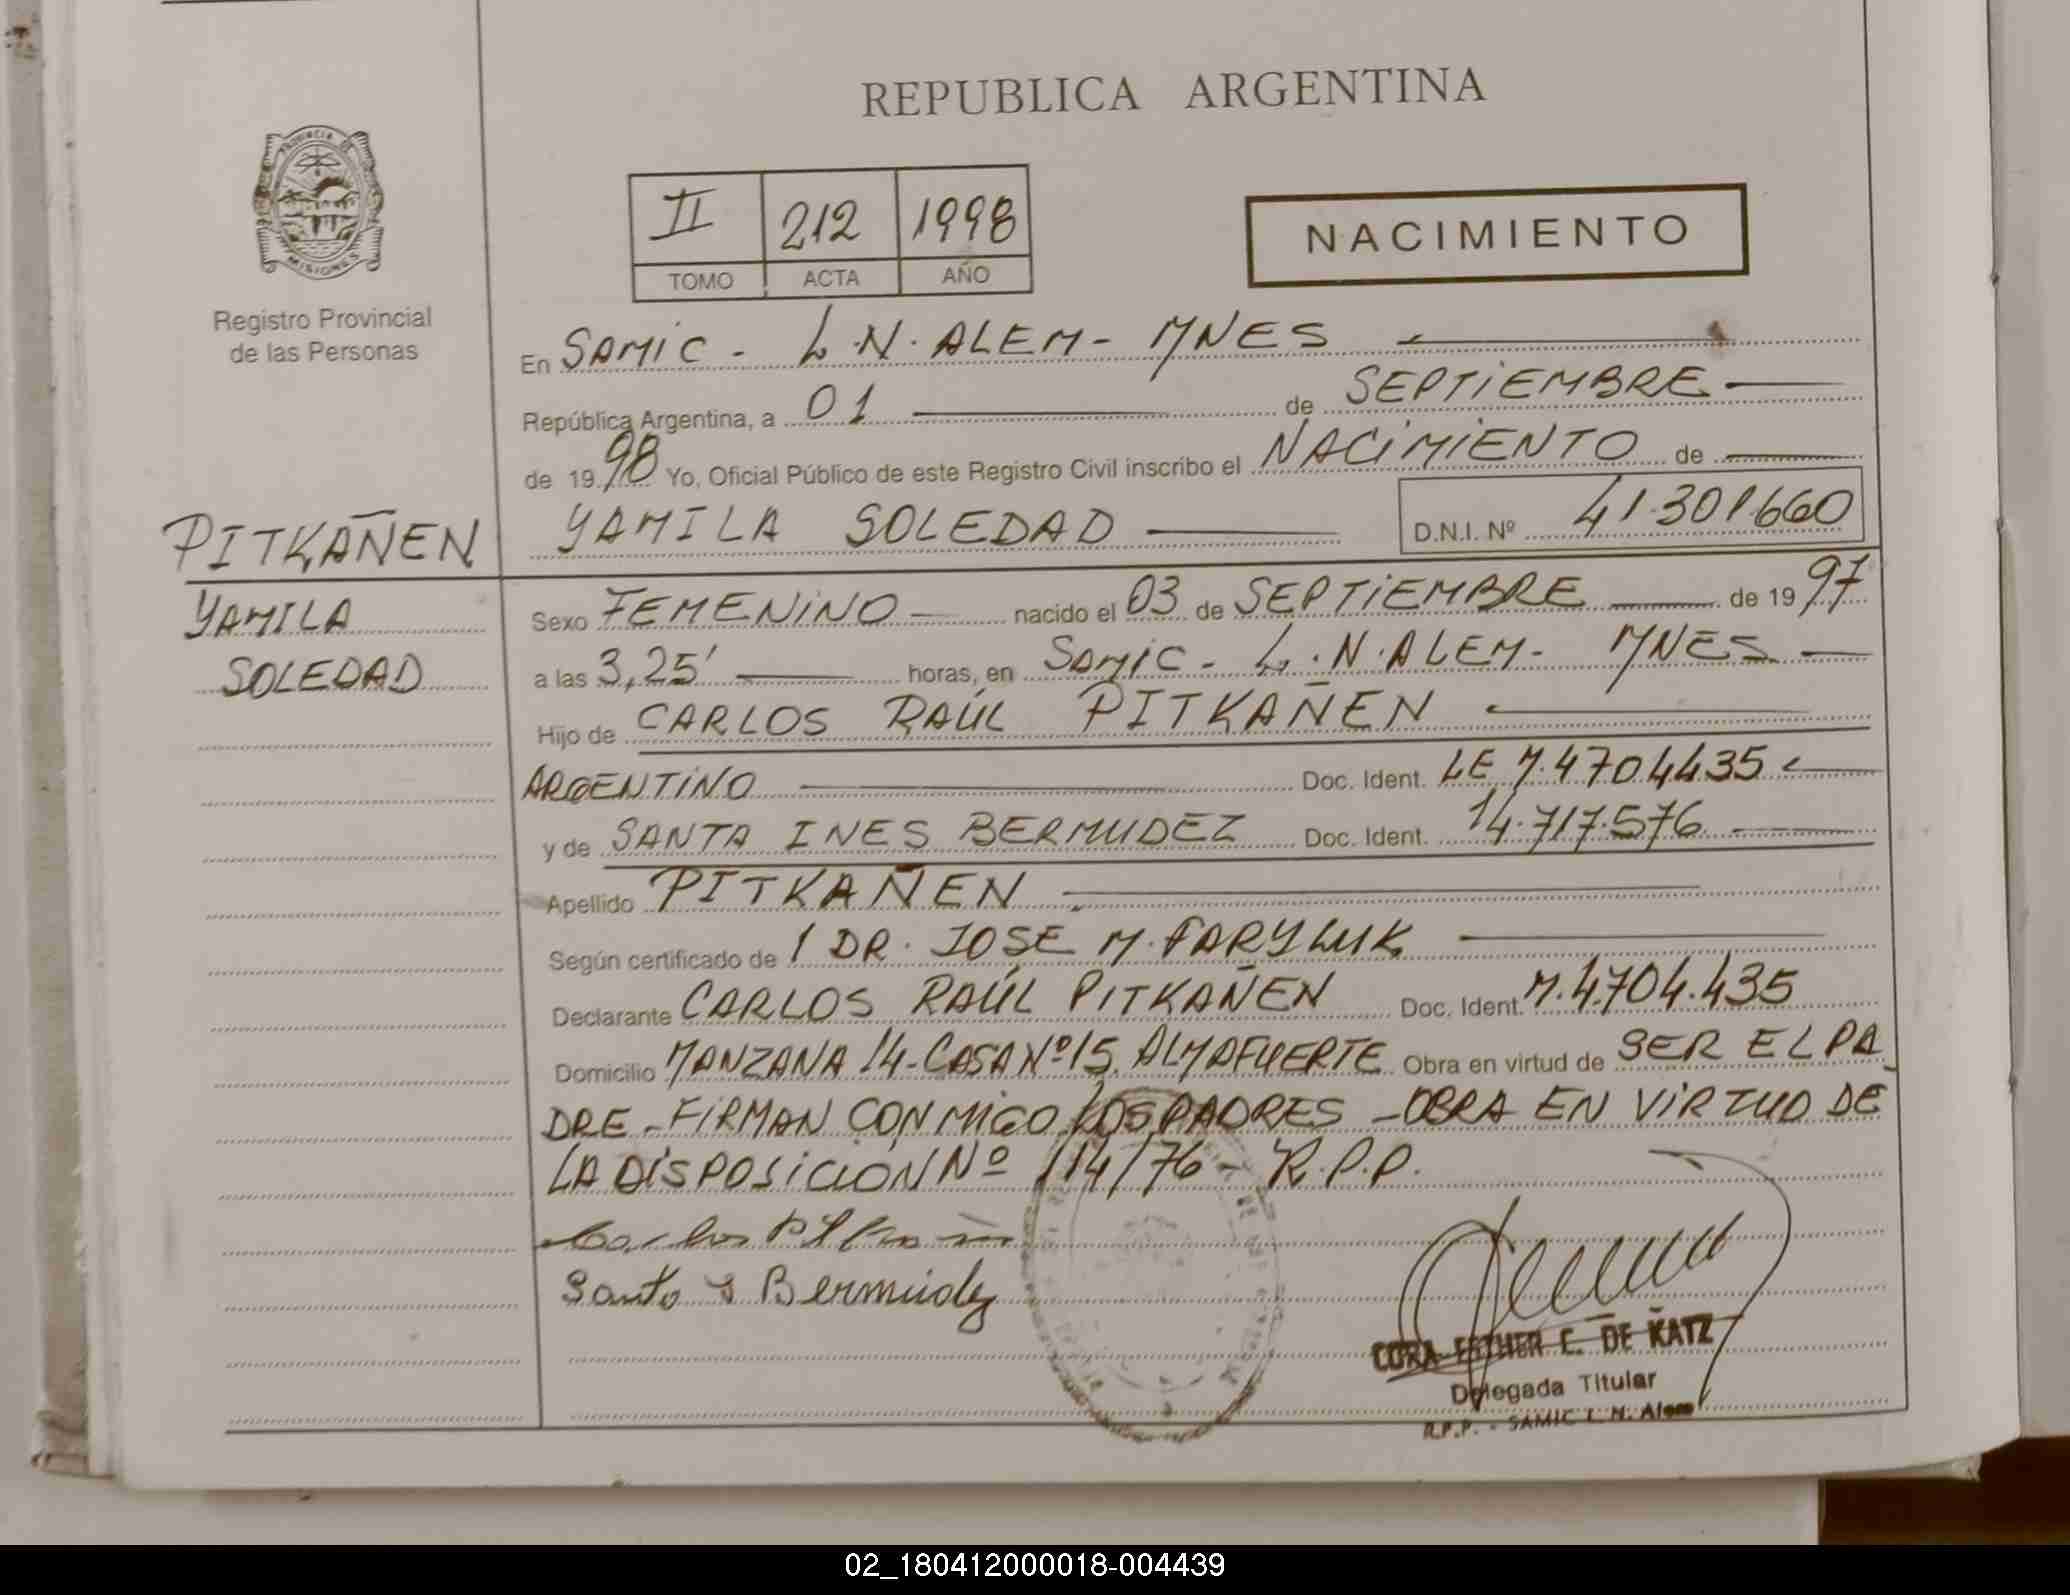 REPUBLICA ARGENTINA
PROVINCIA DE MISIONES
Registro Provincial
de las Personas
II 212 1998
TOMO ACTA AÑO
NACIMIENTO
En SAMIC - L.N. ALEM - MNES
República Argentina, a 01 de SEPTIEMBRE
de 1998 Yo, Oficial Público de este Registro Civil inscribo el NACIMIENTO de
YAMILA SOLEDAD D.N.I. Nº 41.301.660
PITKAÑEN
YAMILA
SOLEDAD
Sexo FEMENINO nacido el 03 de SEPTIEMBRE de 1997
a las 3,25' horas, en SAMIC - L.N. ALEM - MNES
Hijo de CARLOS RAÚL PITKAÑEN
ARGENTINO Doc. Ident. LE M.4704435
y de SANTA INES BERMUDEZ Doc. Ident. 14.717.576
Apellido PITKAÑEN
Según certificado de 1 DR. JOSE M. FARYLUK
Declarante CARLOS RAÚL PITKAÑEN Doc. Ident. M.4.704.435
Domicilio MANZANA 14 - CASA Nº 15. ALMAFUERTE Obra en virtud de SER EL PA
DRE - FIRMAN CONMIGO LOS PADRES - OBRA EN VIRTUD DE
LA DISPOSICION Nº 114/76 - R.P.P.
Santa I Bermudez
CORA ESTHER C. DE KATZ
Delegada Titular
R.P.P. - SAMIC L. N. Alem
02_180412000018-004439